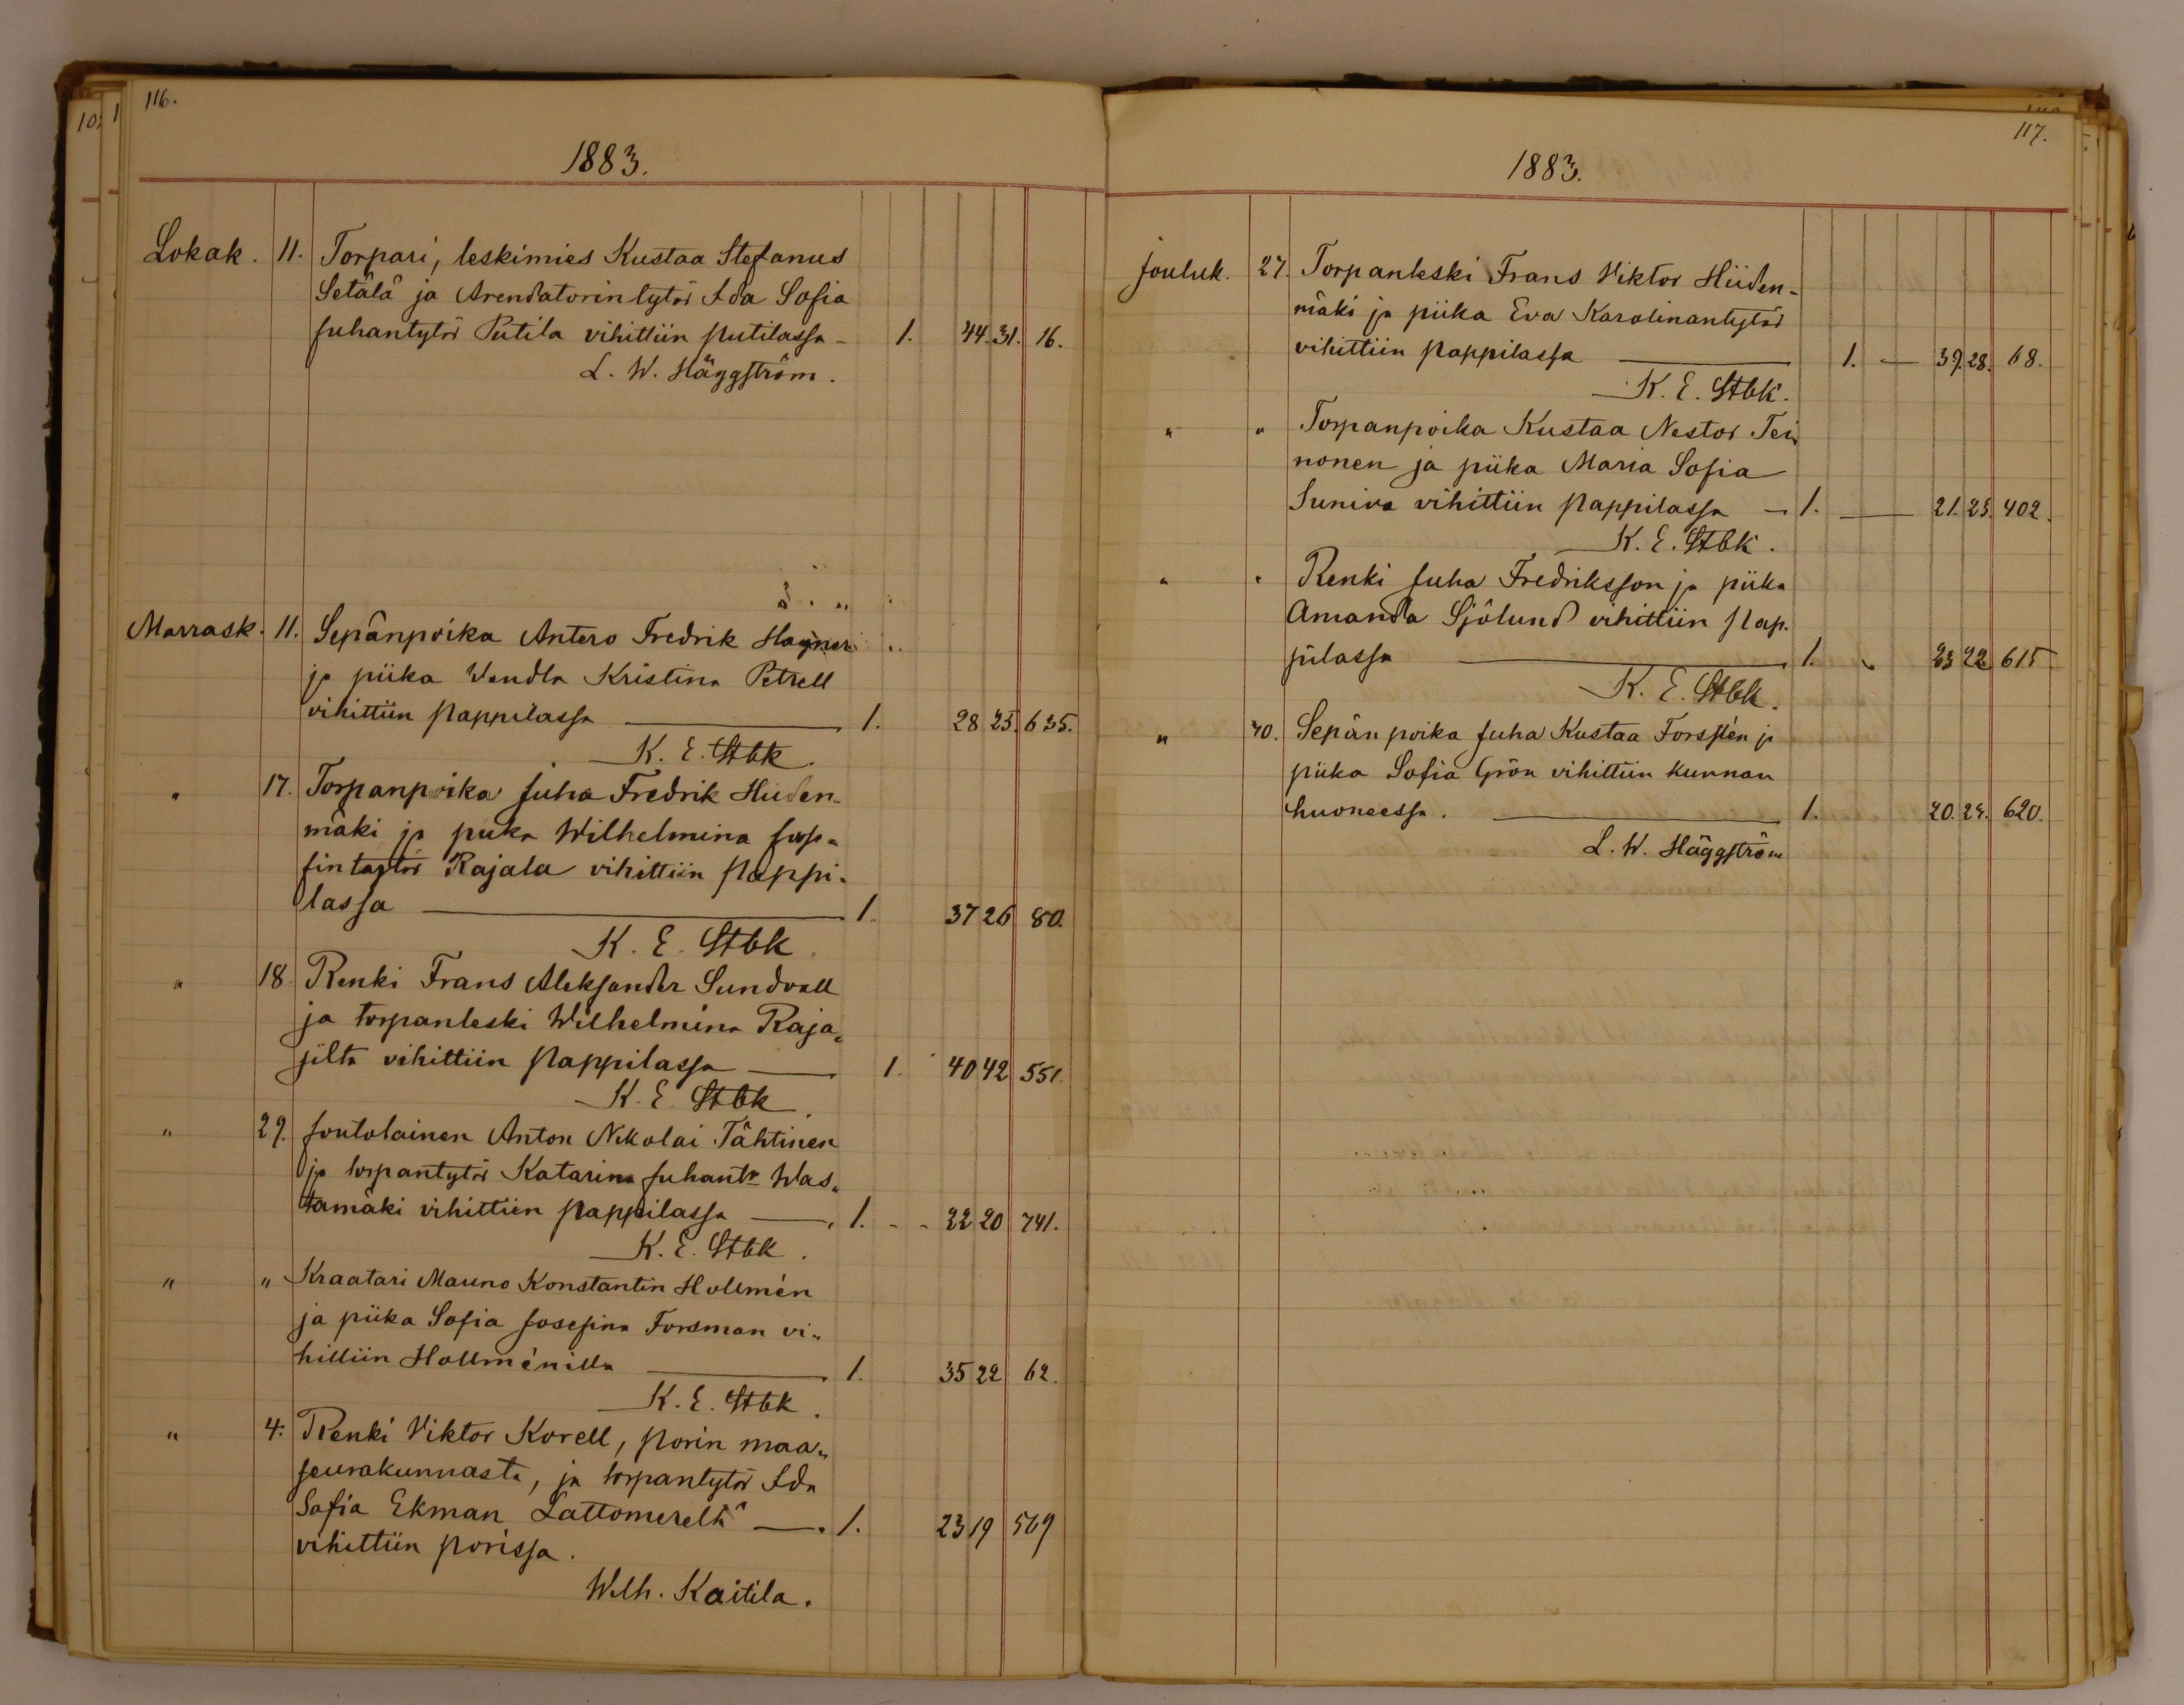 116.
1883.
Lokak. 11. Torpari, leskimies Kustaa Stefanus
Setälä ja Arendatorintytär Ida Sofia
Juhantytär Putila vihittiin Putilassa - 1. 44. 31. 16.
L. W. Häggström.
Marrask. 11. Sepänpoika Antero Fredrik Hagner
ja piika Wendla Kristina Petrell
vihittiin Pappilassa 1. 28 25. 635.
K. E. Stbk.
" 17. Torpanpoika Juha Fredrik Hiiden-
mäki ja piika Wilhelmina
Rajala vihittiin Pappi-
lassa 1. 37 26 80.
K. E. Stbk.
" 18. Renki Frans Aleksander Sundvall
ja torpanleski Wilhelmina Raja-
vihittiin Pappilassa 1. 40 42 551.
K. E. Stbk.
" 29. Joutolainen Anton Nikolai Tähtinen
ja torpantytär Katarina Juhantr Was-
tamäki vihittiin Pappilassa 1. - - 22 20 741.
K. E. Stbk.
" " Kraatari Mauno Konstantin Hollmén
ja piika Sofia Josefina Forsman vi-
hittiin Hollménilla 1. 35 22 62.
K. E. Stbk.
" 4. Renki Viktor Korell, Porin maa-
seurakunnasta, ja torpantytär Ida
Sofia Ekman Lattomereltä 1. 23 19 569
vihittiin Porissa.
Wilh. Kaitila.
117.
1883.
Jouluk. 27. Torpanleski Frans Viktor Hiiden-
mäki ja piika Eva Karolinantytär
vihittiin Pappilassa 1. 39. 28. 68.
K. E. Stbk.
" " Torpanpoika Kustaa Nestor Tei-
nonen ja piika Maria Sofia
Suniva vihittiin Pappilassa 1. 21. 25. 402.
K. E. Stbk.
" " Renki Juha Fredriksson ja piika
Amanda Sjölund vihittiin Pap-
pilassa 1. " 23 22 615
K. E. Stbk.
" 30. Sepän poika Juha Kustaa Forssten ja
piika Sofia Grön vihittiin kunnan
huoneessa. 1. 20. 24. 620.
L. W. Häggström